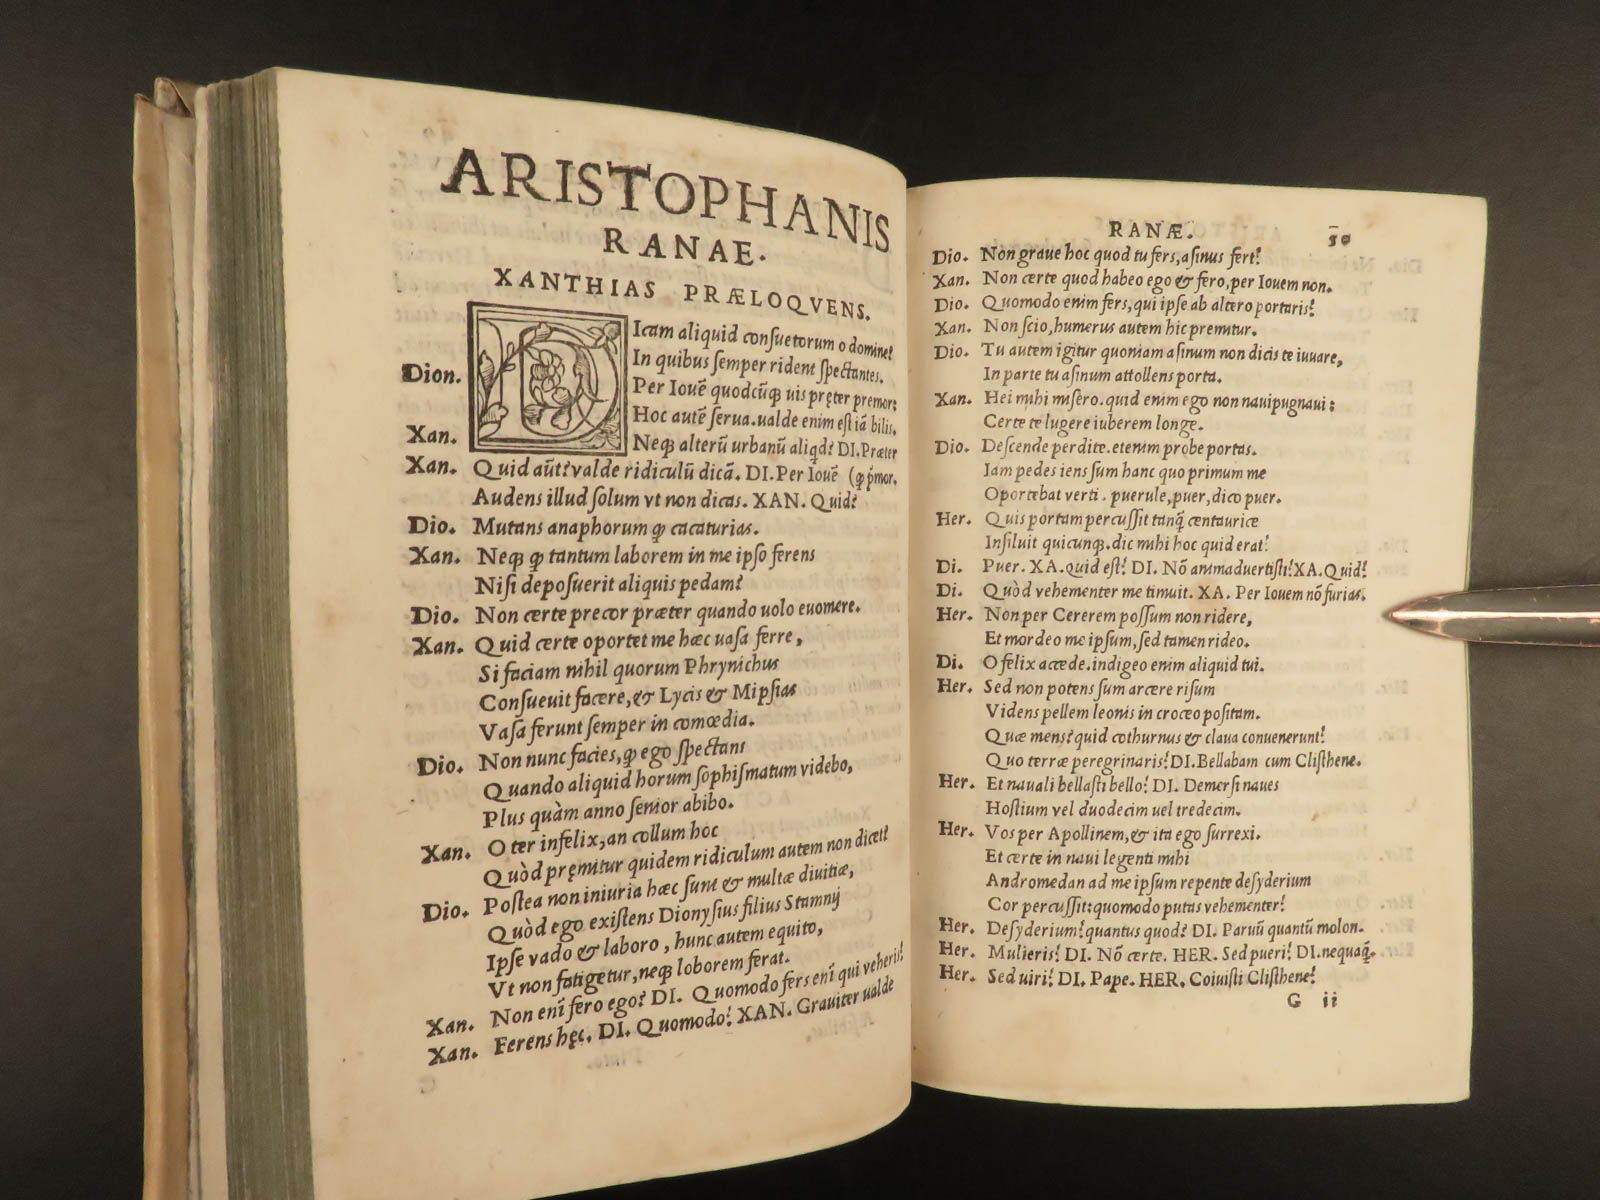 ARISTOPHANIS
RANAE.
XANTHIAS PRÆLOQVENS.
DIcam aliquid consuetorum o domine?
In quibus semper rident spectantes.
Dion. Per Iouē quodcūq; uis pręter premor:
Hoc autē serua. ualde enim est iā bilis.
Xan. Neq; alterū urbanū aliqd? DI. Præter
Xan. Quid aūt? ualde ridiculū dicā. DI. Per Iouē (q p̄mor.
Audens illud solum vt non dicas. XAN. Quid?
Dio. Mutans anaphorum q cacaturias.
Xan. Neq; q tantum laborem in me ipso ferens
Nisi deposuerit aliquis pedam?
Dio. Non certe precor præter quando uolo euomere.
Xan. Quid certe oportet me hæc uasa ferre,
Si faciam nihil quorum Phrynichus
Consueuit facere, & Lycis & Mipsias
Vasa ferunt semper in comœdia.
Dio. Non nunc facies, q ego spectans
Quando aliquid horum sophismatum videbo,
Plus quàm anno senior abibo.
Xan. O ter infelix, an collum hoc
Quòd pręmitur quidem ridiculum autem non dicet?
Dio. Postea non iniuria hæc sunt & multæ diuitiæ,
Quòd ego existens Dionysius filius Stamnij
Ipse vado & laboro, hunc autem equito,
Vt non fatigetur, neq; loborem ferat.
Xan. Non enī fero ego? DI. Quomodo fers enī qui veheris?
Xan. Ferens hęc. DI. Quomodo? XAN. Grauiter ualde
RANÆ. 50
Dio. Non graue hoc quod tu fers, asinus fert?
Xan. Non certe quod habeo ego & fero, per Iouem non.
Dio. Quomodo enim fers, qui ipse ab altero portaris?
Xan. Non scio, humerus autem hic premitur.
Dio. Tu autem igitur quoniam asinum non dicis te iuuare,
In parte tu asinum attollens porta.
Xan. Hei mihi misero. quid enim ego non nauipugnaui:
Certe te lugere iuberem longe.
Dio. Descende perdite. etenim probe portas.
Iam pedes iens sum hanc quo primum me
Oportebat verti. puerule, puer, dico puer.
Her. Quis portam percussit tanq̃ centaurice
Insiluit quicunq;. dic mihi hoc quid erat?
Di. Puer. XA. quid est? DI. Nō animaduertisti? XA. Quid?
Di. Quòd vehementer me timuit. XA. Per Iouem nō furias.
Her. Non per Cererem possum non ridere,
Et mordeo me ipsum, sed tamen rideo.
Di. O felix accede. indigeo enim aliquid tui.
Her. Sed non potens sum arcere risum
Videns pellem leonis in croceo positam.
Quæ mens? quid cothurnus & claua conuenerunt?
Quo terræ peregrinaris? DI. Bellabam cum Clisthene.
Her. Et nauali bellasti bello? DI. Demersi naues
Hostium vel duodecim uel tredecim.
Her. Vos per Apollinem, & ita ego surrexi.
Et certe in naui legenti mihi
Andromedan ad me ipsum repente desyderium
Cor percussit: quomodo putas vehementer?
Her. Desyderium? quantus quod? DI. Paruū quantū molon.
Her. Mulieris? DI. Nō certe. HER. Sed pueri? DI. nequaq̃.
Her. Sed uiri? DI. Pape. HER. Coiuisti Clisthene?
G ii